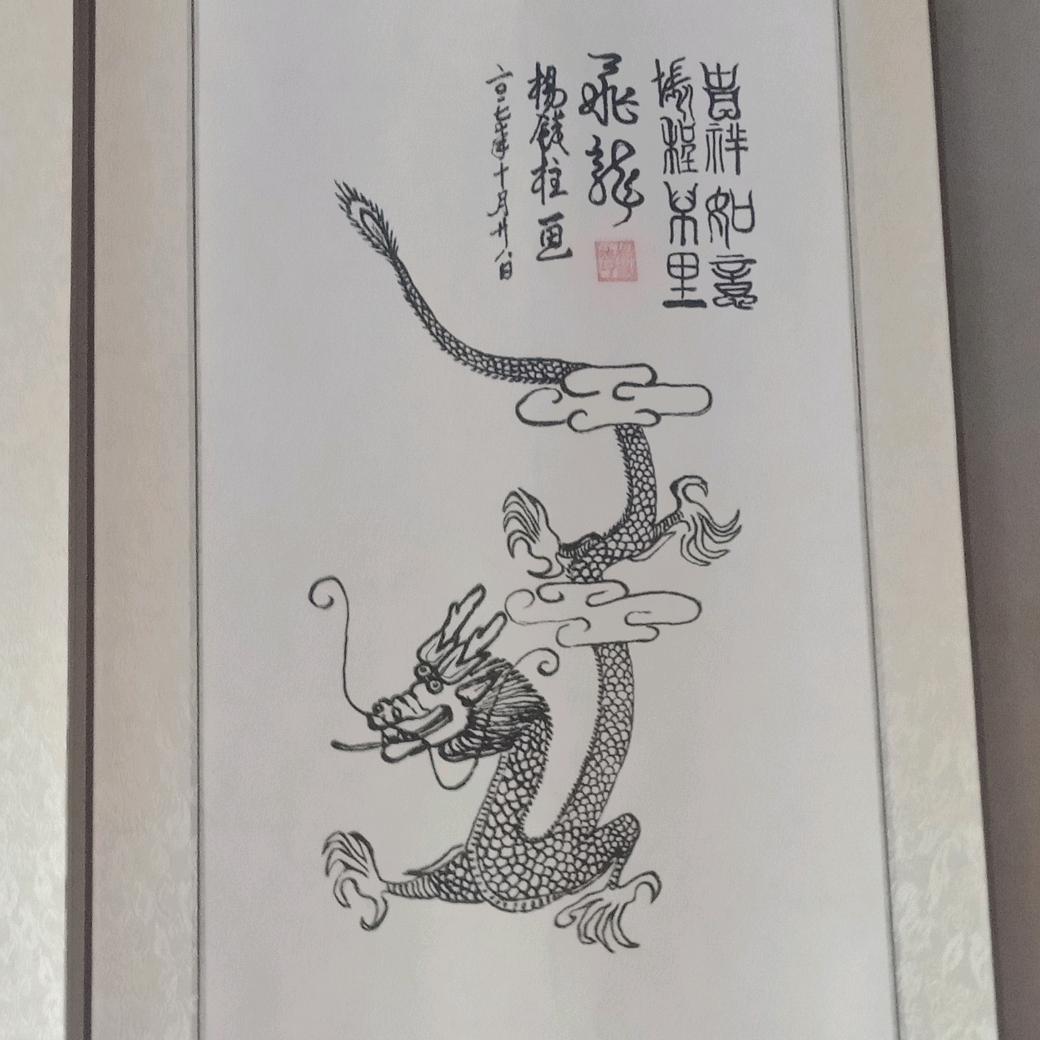 吉祥如意
程萬里
飛龍
楊鐵柱画
二〇一七年十月廿八日